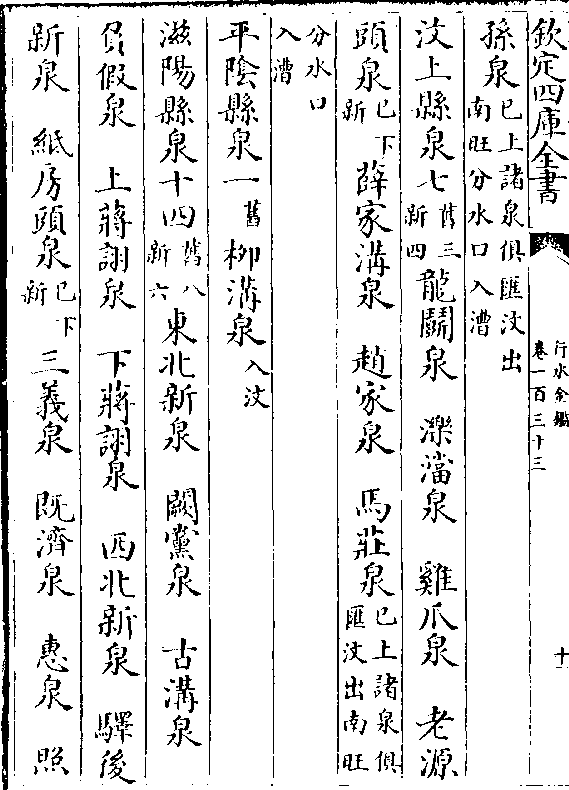 欽定四庫全書
行水金鑑
卷一百三十三
十
孫泉已上諸泉俱匯汶出南旺分水口入漕
汶上縣泉七舊三新四龍鬭泉 濼澢泉 雞爪泉 老源
頭泉已下新薛家溝泉 趙家泉 馬莊泉已上諸泉俱匯汶出南旺
分水口入漕
平陰縣泉一舊柳溝泉入汶
滋陽縣泉十四舊八新六東北新泉 闕黨泉 古溝泉
負假泉 上蔣詡泉 下蔣詡泉 西北新泉 驛後
新泉 紙房頭泉已下新三義泉 既濟泉 惠泉 照